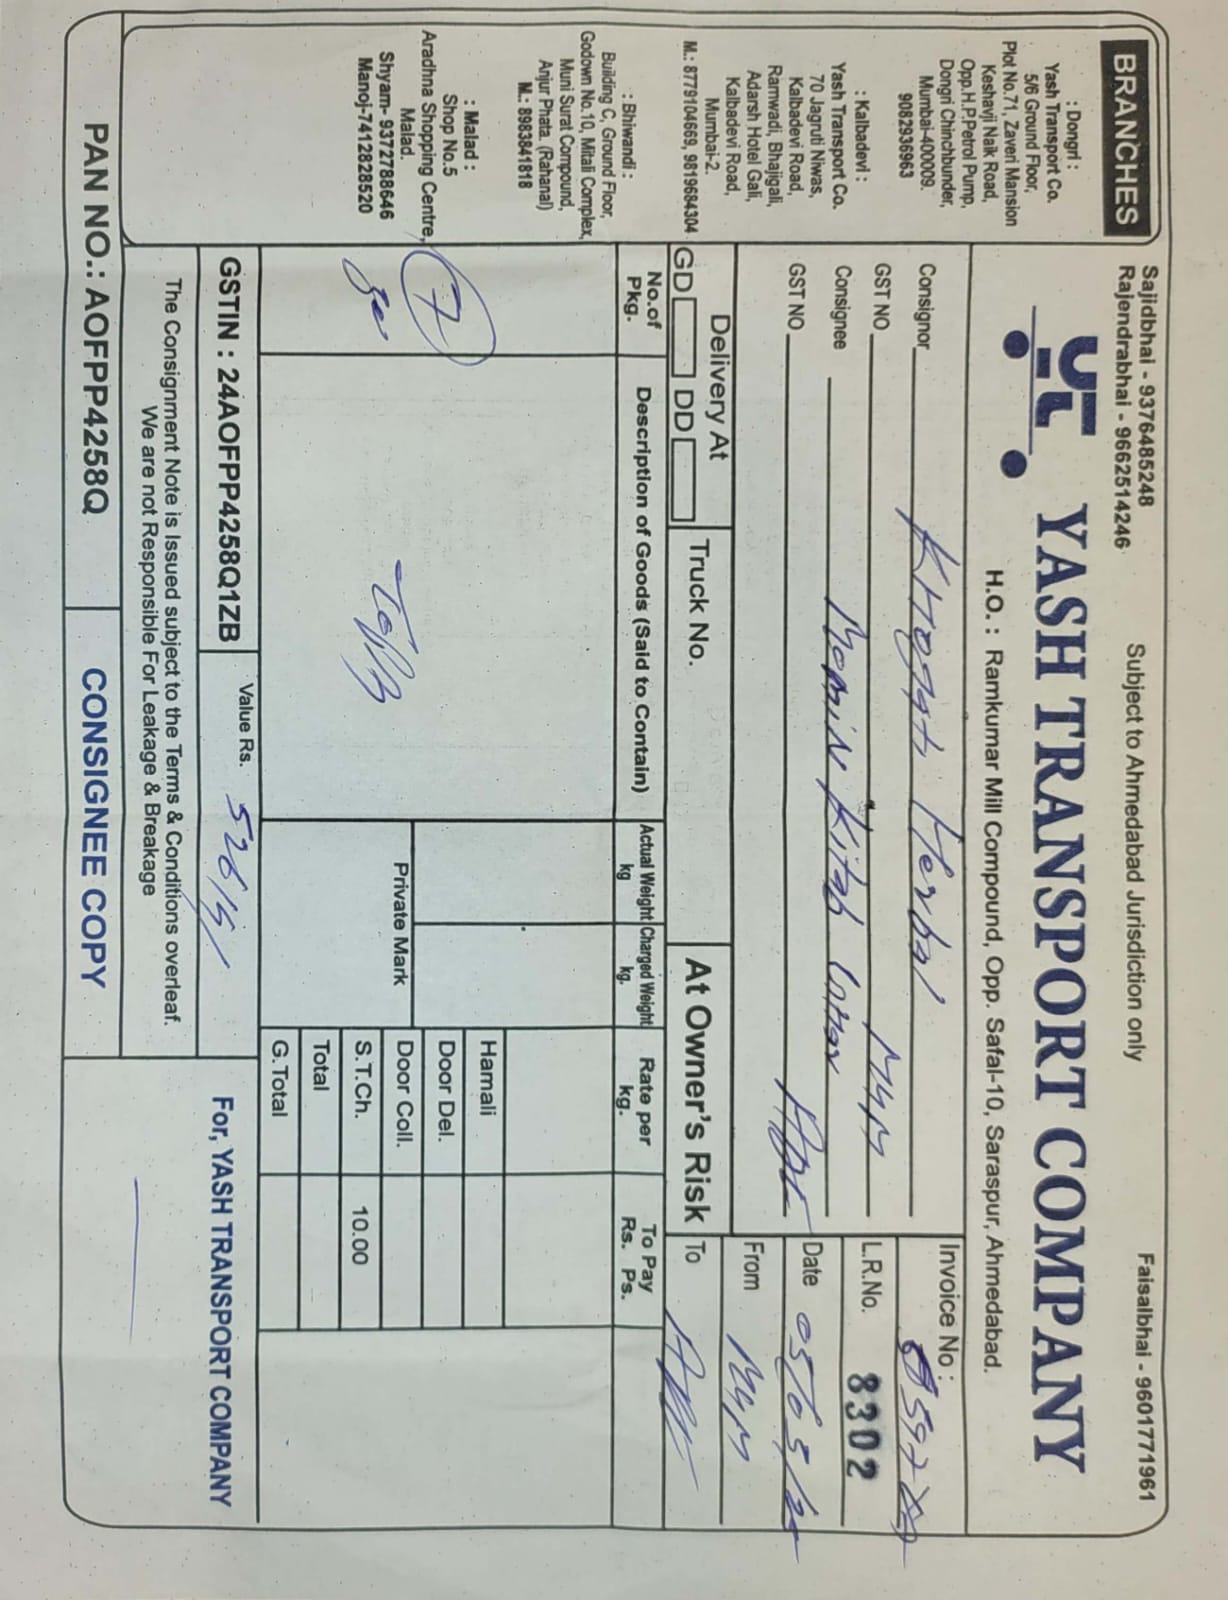 Sajidbhai - 9376485248
Rajendrabhai - 9662514246
Subject to Ahmedabad Jurisdiction only
Faisalbhai - 9601771961
YASH TRANSPORT COMPANY
H.O. : Ramkumar Mill Compound, Opp. Safal-10, Saraspur, Ahmedabad.
BRANCHES
: Dongri :
Yash Transport Co.
5/6 Ground Floor,
Plot No.71, Zaveri Mansion
Keshavji Naik Road,
Opp.H.P.Petrol Pump,
Dongri Chinchbunder,
Mumbai-400009.
9082936963
: Kalbadevi :
Yash Transport Co.
70 Jagruti Niwas,
Kalbadevi Road,
Ramwadi, Bhajigali,
Adarsh Hotel Gali,
Kalbadevi Road,
Mumbai-2.
M.: 8779104669, 9819684304
: Bhiwandi :
Building C, Ground Floor,
Godown No.10, Mitali Complex,
Muni Surat Compound,
Anjur Phata. (Rahanal)
M.: 8983841818
: Malad :
Shop No.5
Aradhna Shopping Centre,
Malad.
Shyam- 9372788646
Manoj-7412828520
Consignor Herbal
GST NO
Consignee Momin Kitab
GST NO
Invoice No :
L.R.No. 8302
Date
From
To
Delivery At
GD DD
Truck No.
At Owner's Risk
No.of Pkg.
Description of Goods (Said to Contain)
Actual Weight kg
Charged Weight kg.
Rate per kg.
To Pay Rs. Ps.
7
Private Mark
Hamali
Door Del.
Door Coll.
S.T.Ch. 10.00
Total
G.Total
GSTIN : 24AOFPP4258Q1ZB
Value Rs.
The Consignment Note is Issued subject to the Terms & Conditions overleaf.
We are not Responsible For Leakage & Breakage
For, YASH TRANSPORT COMPANY
PAN NO.: AOFPP4258Q
CONSIGNEE COPY